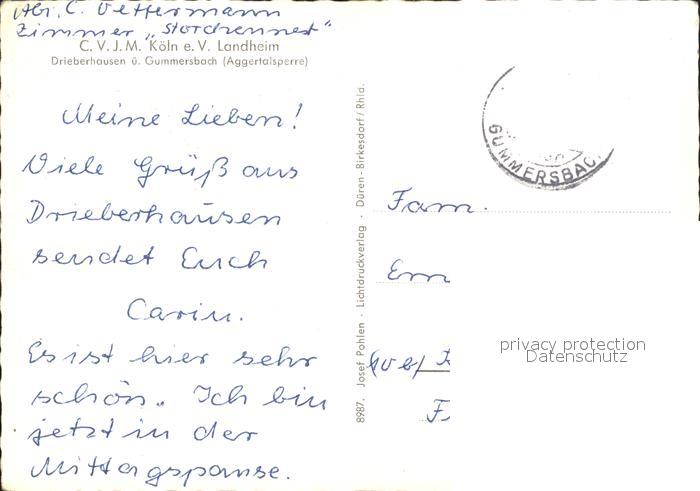 Abs. C. Vettermann
Zimmer „Storchennest"
C.V.J.M. Köln e.V. Landheim
Drieberhausen ü. Gummersbach (Aggertalsperre)
Meine Lieben!
Viele Grüß aus
Drieberhausen
sendet Euch
Carin.
Es ist hier sehr
schön. Ich bin
jetzt in der
Mittagspause.
8987. Josef Pohlen · Lichtdruckverlag · Düren-Birkesdorf/Rhld.
GUMMERSBAC
Fam.
Em
F
privacy protection
Datenschutz